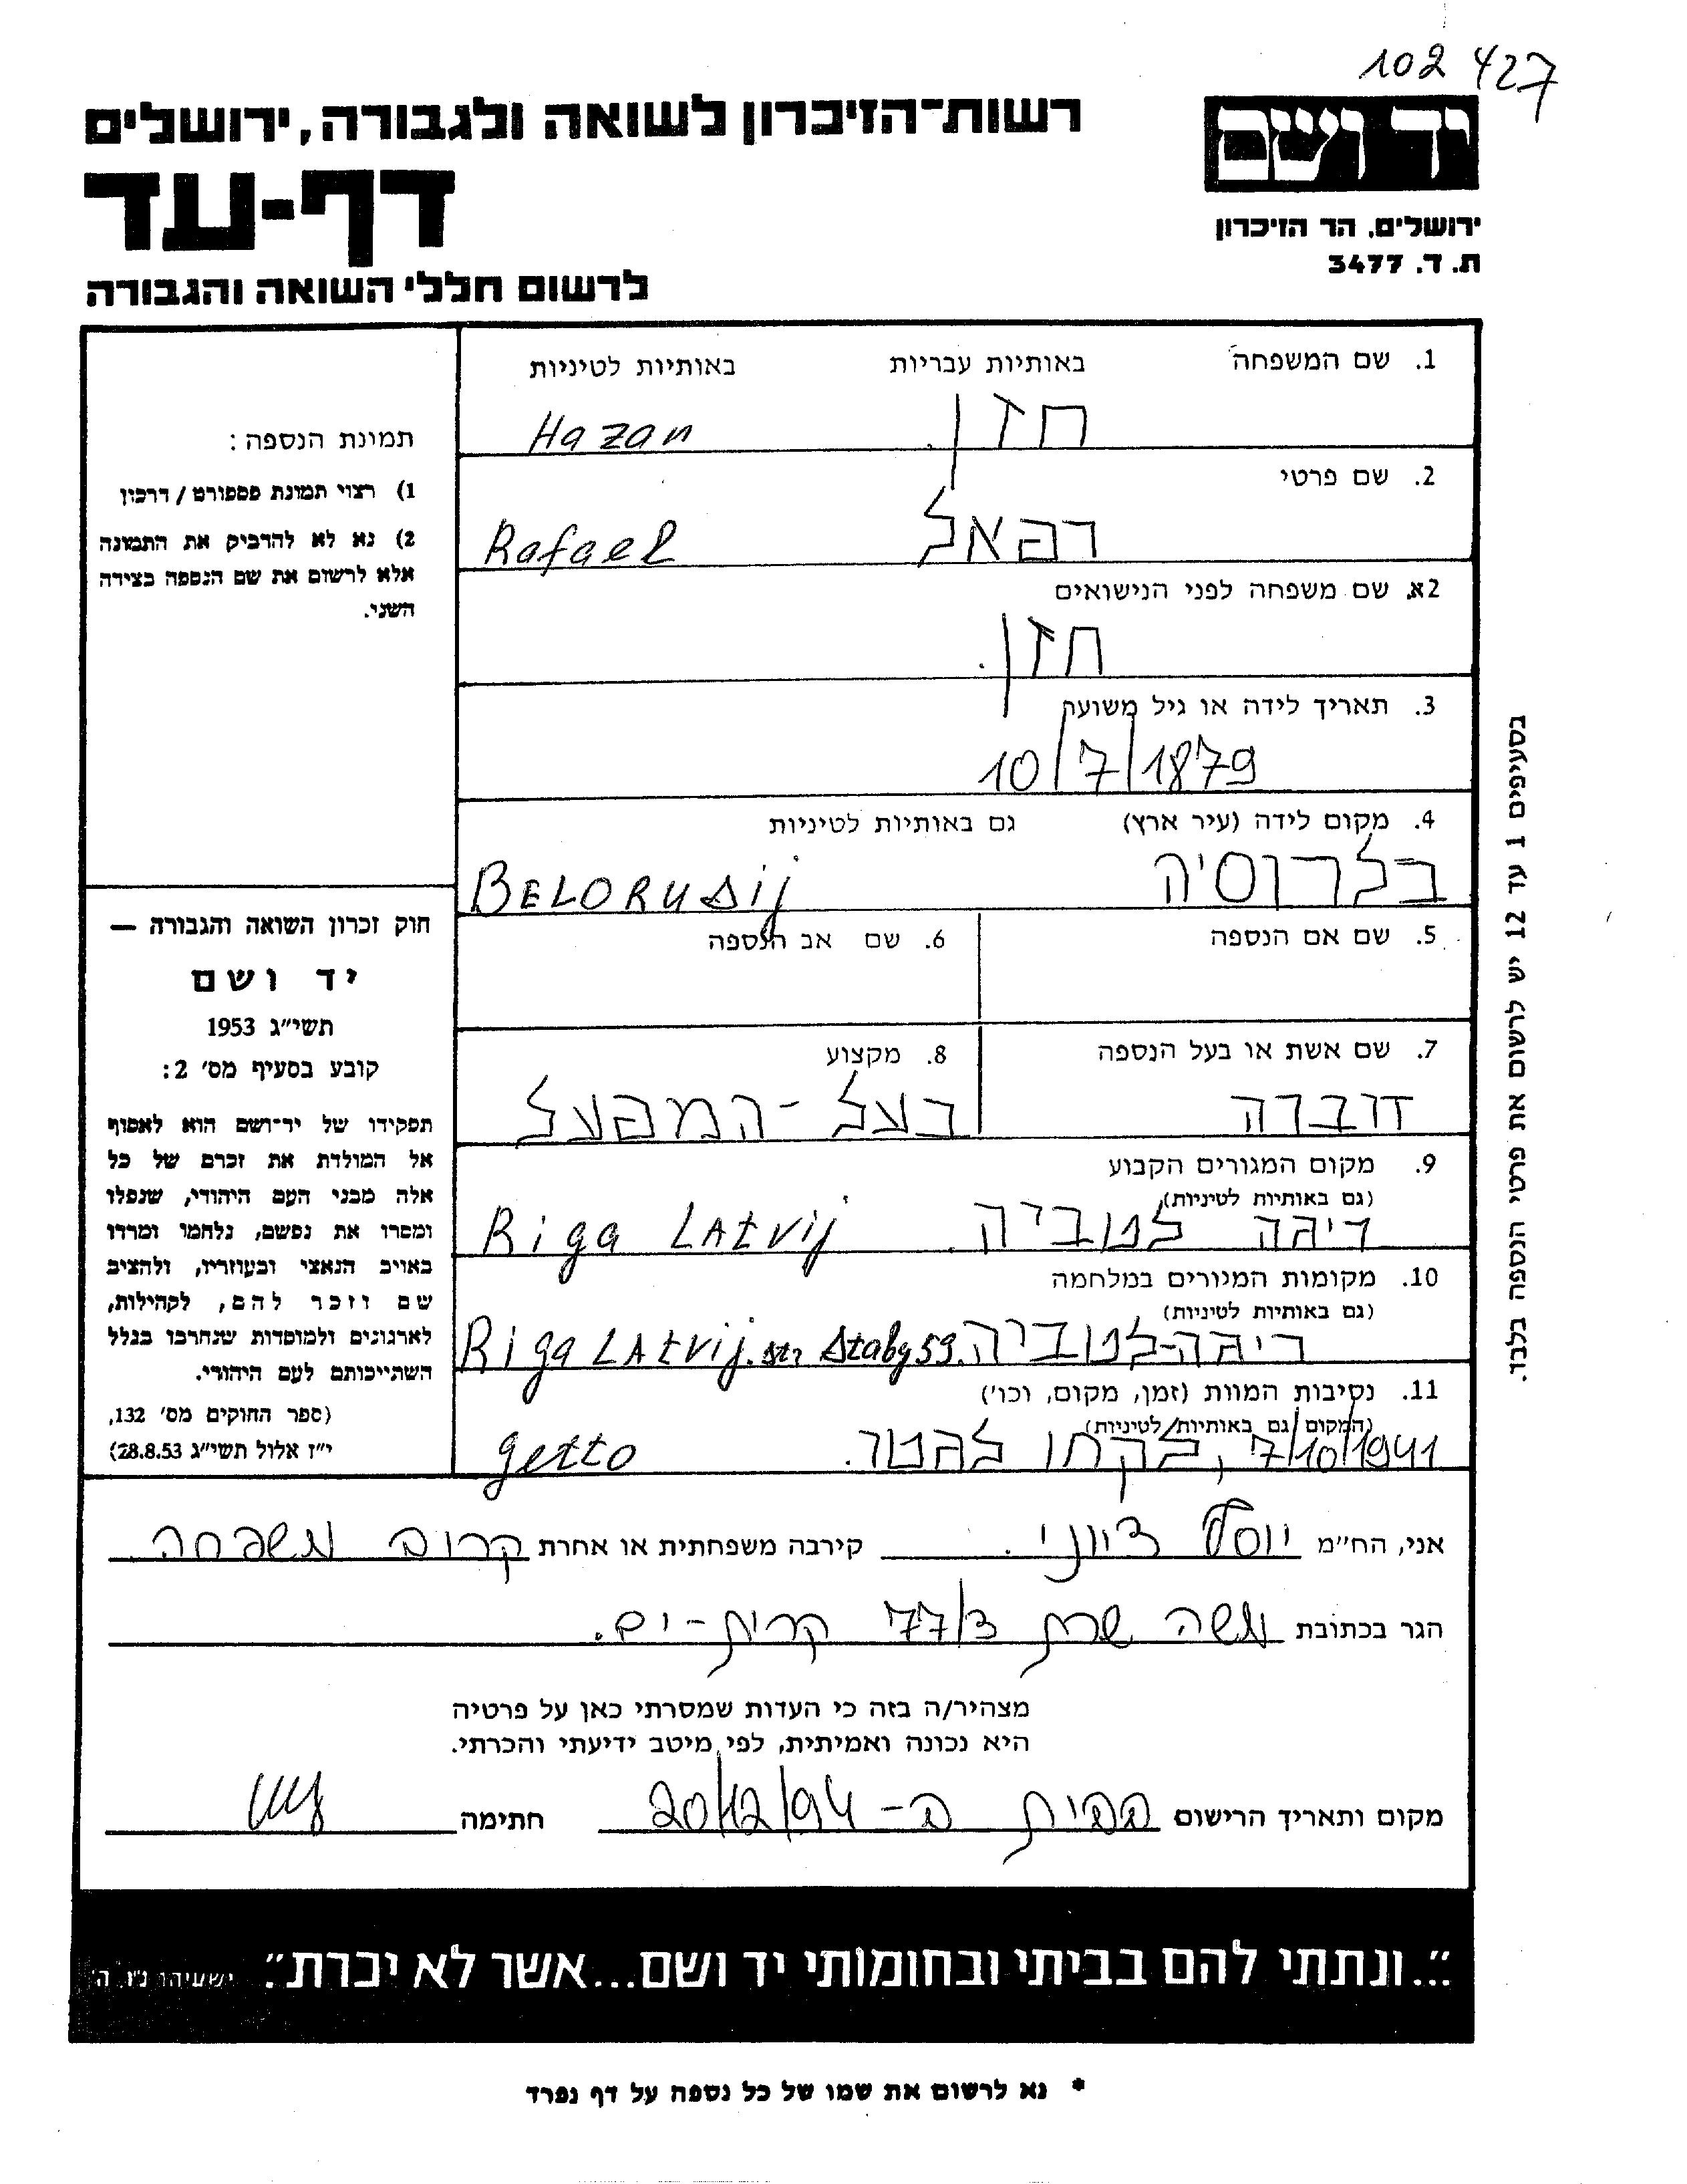 102 427
יד ושם
רשות-הזיכרון לשואה ולגבורה, ירושלים
דף-עד
לרשום חללי השואה והגבורה
ירושלים, הר הזיכרון
ת. ד. 3477
1. שם המשפחה באותיות עבריות באותיות לטיניות
חזן. Hazan
2. שם פרטי
רפאל Rafael
2א. שם משפחה לפני הנישואים
חזן.
3. תאריך לידה או גיל משוער
10/7/1879
4. מקום לידה (עיר ארץ) גם באותיות לטיניות
בלרוסיה BELORUSij
5. שם אם הנספה 6. שם אב הנספה
7. שם אשת או בעל הנספה 8. מקצוע
דוברה בעל-המפעל
9. מקום המגורים הקבוע
(גם באותיות לטיניות)
ריגה לטביה. Riga LAtvij
10. מקומות המגורים במלחמה
(גם באותיות לטיניות)
ריגה-לטביה Riga LAtvij. str Staby 59.
11. נסיבות המוות (זמן, מקום, וכו')
(המקום גם באותיות לטיניות)
7/10/1941, לקחו לגטו. getto
תמונת הנספה:
1) רצוי תמונת פספורט / דרכון
2) נא לא להדביק את התמונה
אלא לרשום את שם הנספה בצידה
השני.
חוק זכרון השואה והגבורה —
יד ושם
תשי״ג 1953
קובע בסעיף מס׳ 2:
תפקידו של יד־ושם הוא לאסוף
אל המולדת את זכרם של כל
אלה מבני העם היהודי, שנפלו
ומסרו את נפשם, נלחמו ומרדו
באויב הנאצי ובעוזריו, ולהציב
שם וזכר להם, לקהילות,
לארגונים ולמוסדות שנחרבו בגלל
השתייכותם לעם היהודי.
(ספר החוקים מס׳ 132,
י״ז אלול תשי״ג 28.8.53)
בסעיפים 1 עד 12 יש לרשום את פרטי הנספה בלבד.
אני, הח״מ יוסף ציוני. קירבה משפחתית או אחרת קרוב משפחה.
הגר בכתובת משה שרת 77/3 קרית-ים.
מצהיר/ה בזה כי העדות שמסרתי כאן על פרטיה
היא נכונה ואמיתית, לפי מיטב ידיעתי והכרתי.
מקום ותאריך הרישום בבית ב- 20/12/94 חתימה
״...ונתתי להם בביתי ובחומותי יד ושם...אשר לא יכרת״. ישעיהו נ״ו, ה׳
* נא לרשום את שמו של כל נספה על דף נפרד